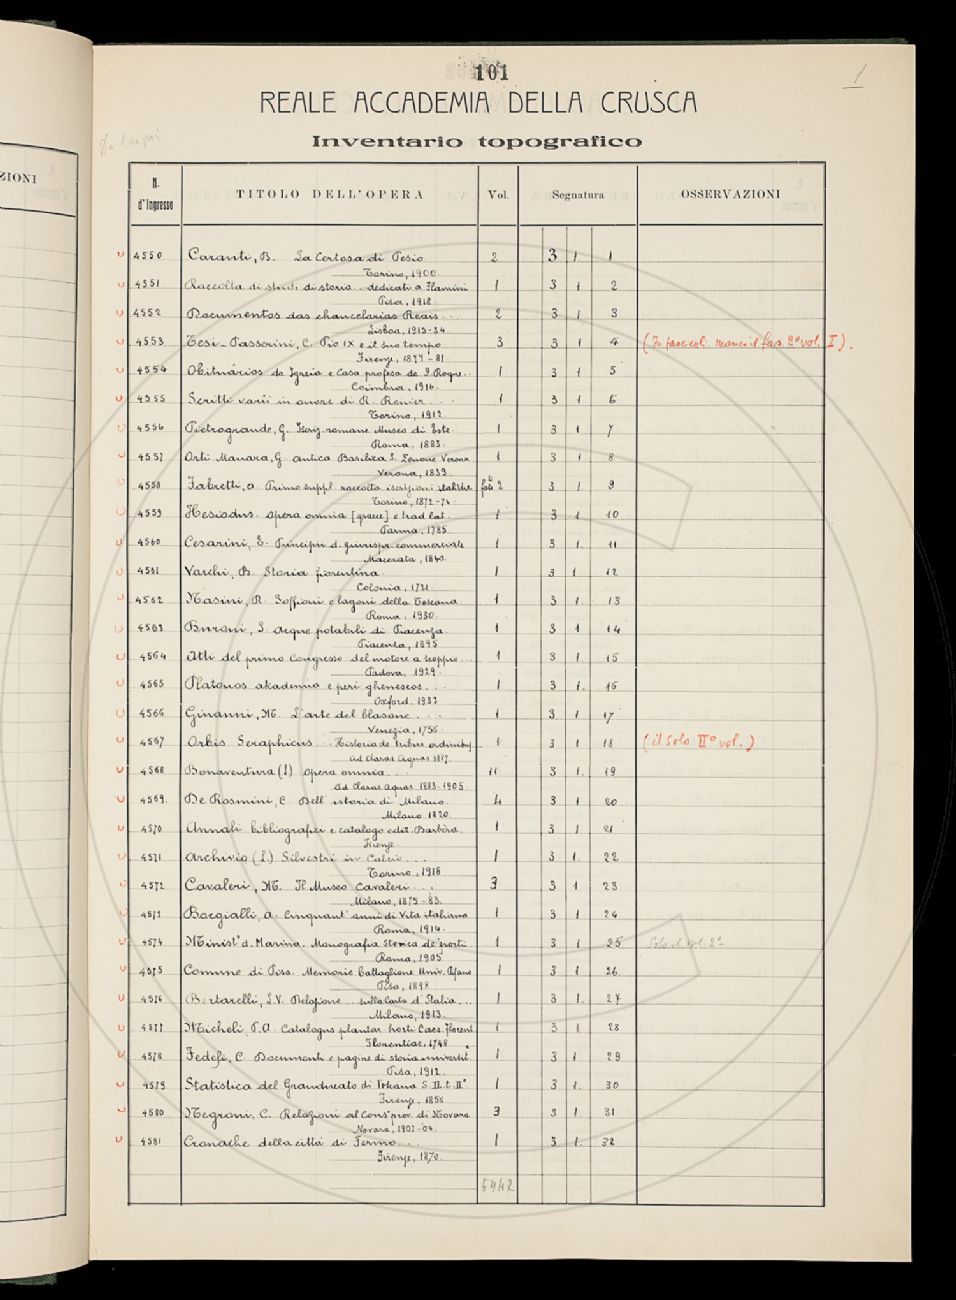 101
1
REALE ACCADEMIA DELLA CRUSCA
Inventario topografico
ZIONI
N. d'Ingresso TITOLO DELL'OPERA Vol. Segnatura OSSERVAZIONI
4550 Caranti, B. La Certosa di Pesio 2 3 1 1
Torino, 1900
4551 Raccolta di studi di storia... dedicati a Flamini 1 3 1 2
Pisa, 1918.
4552 Documentos das chancelarias Reais... 2 3 1 3
Lisboa, 1915-34
4553 Tesi-Passerini, C. Pio IX e il suo tempo 3 3 1 4 (In fascicoli manca il fas. 2º vol. I).
Firenze, 1877-81
4554 Obituarios da Igreia e Casa profesa de S. Roque.. 1 3 1 5
Coimbra, 1916.
4555 Scritti varii in onore di R. Renier... 1 3 1 6
Torino, 1912
4556 Pietrogrande, G. Iscriz. romane Museo di Este 1 3 1 7
Roma, 1883.
4557 Orti Manara, G. antica Basilica S. Zenone Verona 1 3 1 8
Verona, 1839.
4558 Fabretti, a. Primo suppl. raccolta iscrizioni italiche 2 3 1. 9
Torino, 1872-74.
4559 Hesiodus. opera omnia [graece] e trad lat. 1 3 1 10
Parma, 1785
4560 Cesarini, E. Principii d. giurispr. commerciale 1 3 1. 11
Macerata, 1840.
4561 Varchi, B. Storia fiorentina. 1 3 1 12
Colonia, 1721.
4562 Nasini, R. Soffioni e lagoni della Toscana 1 3 1. 13
Roma, 1930.
4563 Buroni, S. Acque potabili di Piacenza. 1 3 1 14
Piacenza, 1895
4564 Atti del primo Congresso del motore a scoppio... 1 3 1 15
Padova, 1929.
4565 Platonos akademia e peri gheneseos... 1 3 1. 16
Oxford, 1933
4566 Ginanni, M. L'arte del blasone.... 1 3 1 17
Venezia, 1756.
4567 Orbis Seraphicus... Historia de tribus ordinibus 1 3 1 18 (il solo IIº vol.)
ad Claras Aquas 1887.
4568 Bonaventura (S) opera omnia... 11 3 1. 19
ad Claras Aquas 1883-1905.
4569. De Rosmini, C. Dell' istoria di Milano. 4 3 1 20
Milano 1820.
4570 Annali bibliografici e catalogo edit. Barbèra. 1 3 1 21
Firenze
4571 Archivio (L') Silvestri in Calcio... 1 3 1. 22
Torino, 1918
4572 Cavaleri, M. Il Museo Cavaleri... 3 3 1 23
Milano, 1875-83.
4573 a. Cinquant' anni di Vita italiana 1 3 1 24
Roma, 1914.
4574 Minist° d. Marina. Monografia Storica de' porti 1 3 1 25 Solo il vol. 2º
Roma, 1905
4575 Comune di Pisa. Memorie battaglione Univ. Pisano 1 3 1 26
Pisa, 1898
4576 Bertarelli, L.V. Relazione... sulla Carta d'Italia... 1 3 1. 27
Milano, 1913.
4577 Micheli, P.A. Catalogus plantar. horti Caes. Florent. 1 3 1 28
Florentiae, 1748
4578 Fedeli, C. Documenti e pagine di storia università 1 3 1 29
Pisa, 1912.
4579 Statistica del Granducato di Toscana S. II. t. IIº. 1 3 1. 30
Firenze, 1856
4580 Negroni, C. Relazioni al Cons° prov. di Novara 3 3 1. 31
Novara, 1902-04.
4581 Cronache della città di Fermo... 1 3 1. 32
Firenze, 1870.
5442